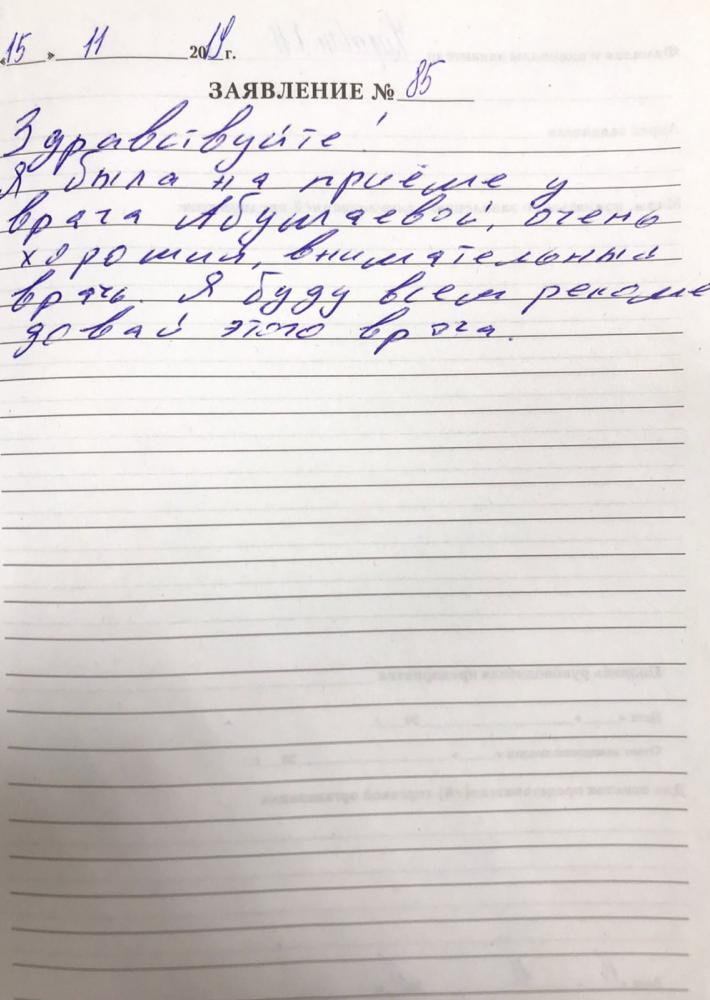 «15» 11 2019 г.
ЗАЯВЛЕНИЕ № 85
Здравствуйте!
Я была на приёме у
врача Абушаевой, очень
хороший, внимательный
врачь. Я буду всем рекоме
довай этого врача.